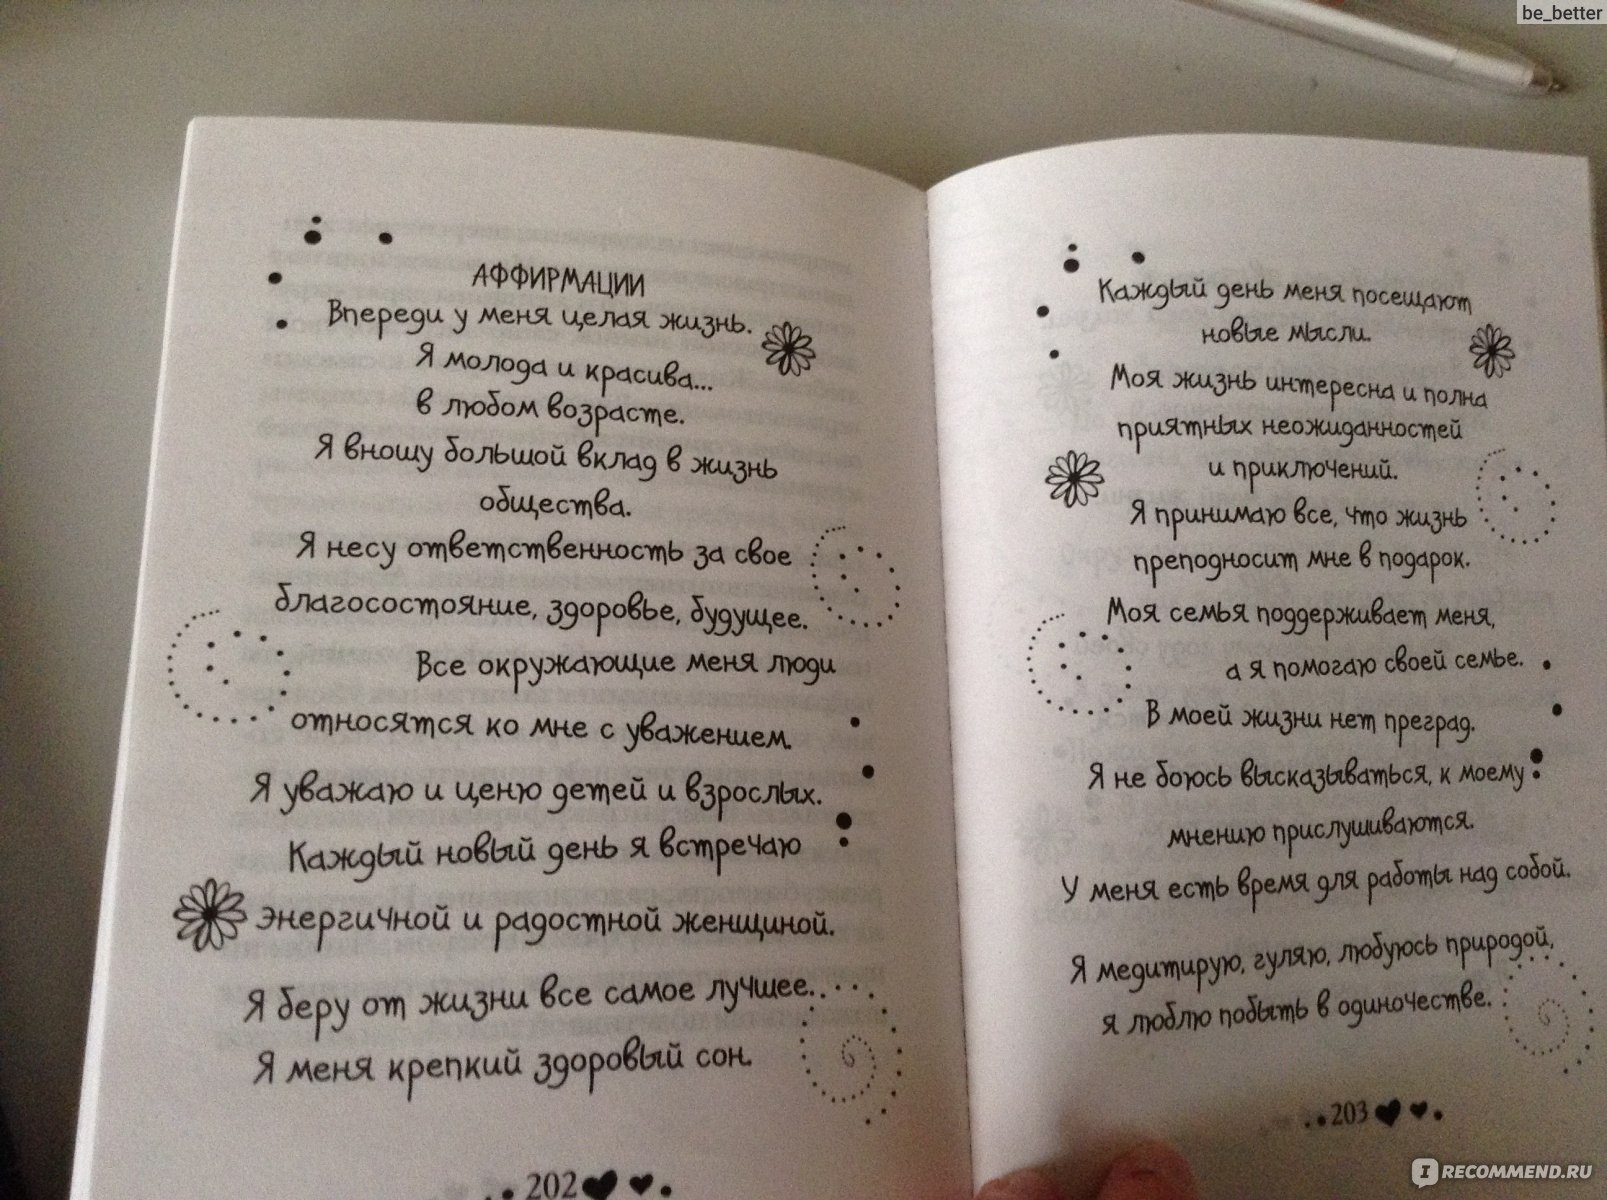 be_better
АФФИРМАЦИИ
Впереди у меня целая жизнь.
Я молода и красива...
в любом возрасте.
Я вношу большой вклад в жизнь
общества.
Я несу ответственность за свое
благосостояние, здоровье, будущее.
Все окружающие меня люди
относятся ко мне с уважением.
Я уважаю и ценю детей и взрослых.
Каждый новый день я встречаю
энергичной и радостной женщиной.
Я беру от жизни все самое лучшее.
Я меня крепкий здоровый сон.
202
Каждый день меня посещают
новые мысли.
Моя жизнь интересна и полна
приятных неожиданностей
и приключений.
Я принимаю все, что жизнь
преподносит мне в подарок.
Моя семья поддерживает меня,
а я помогаю своей семье.
В моей жизни нет преград.
Я не боюсь высказываться, к моему
мнению прислушиваются.
У меня есть время для работы над собой.
Я медитирую, гуляю, любуюсь природой,
я люблю побыть в одиночестве.
203
I RECOMMEND.RU